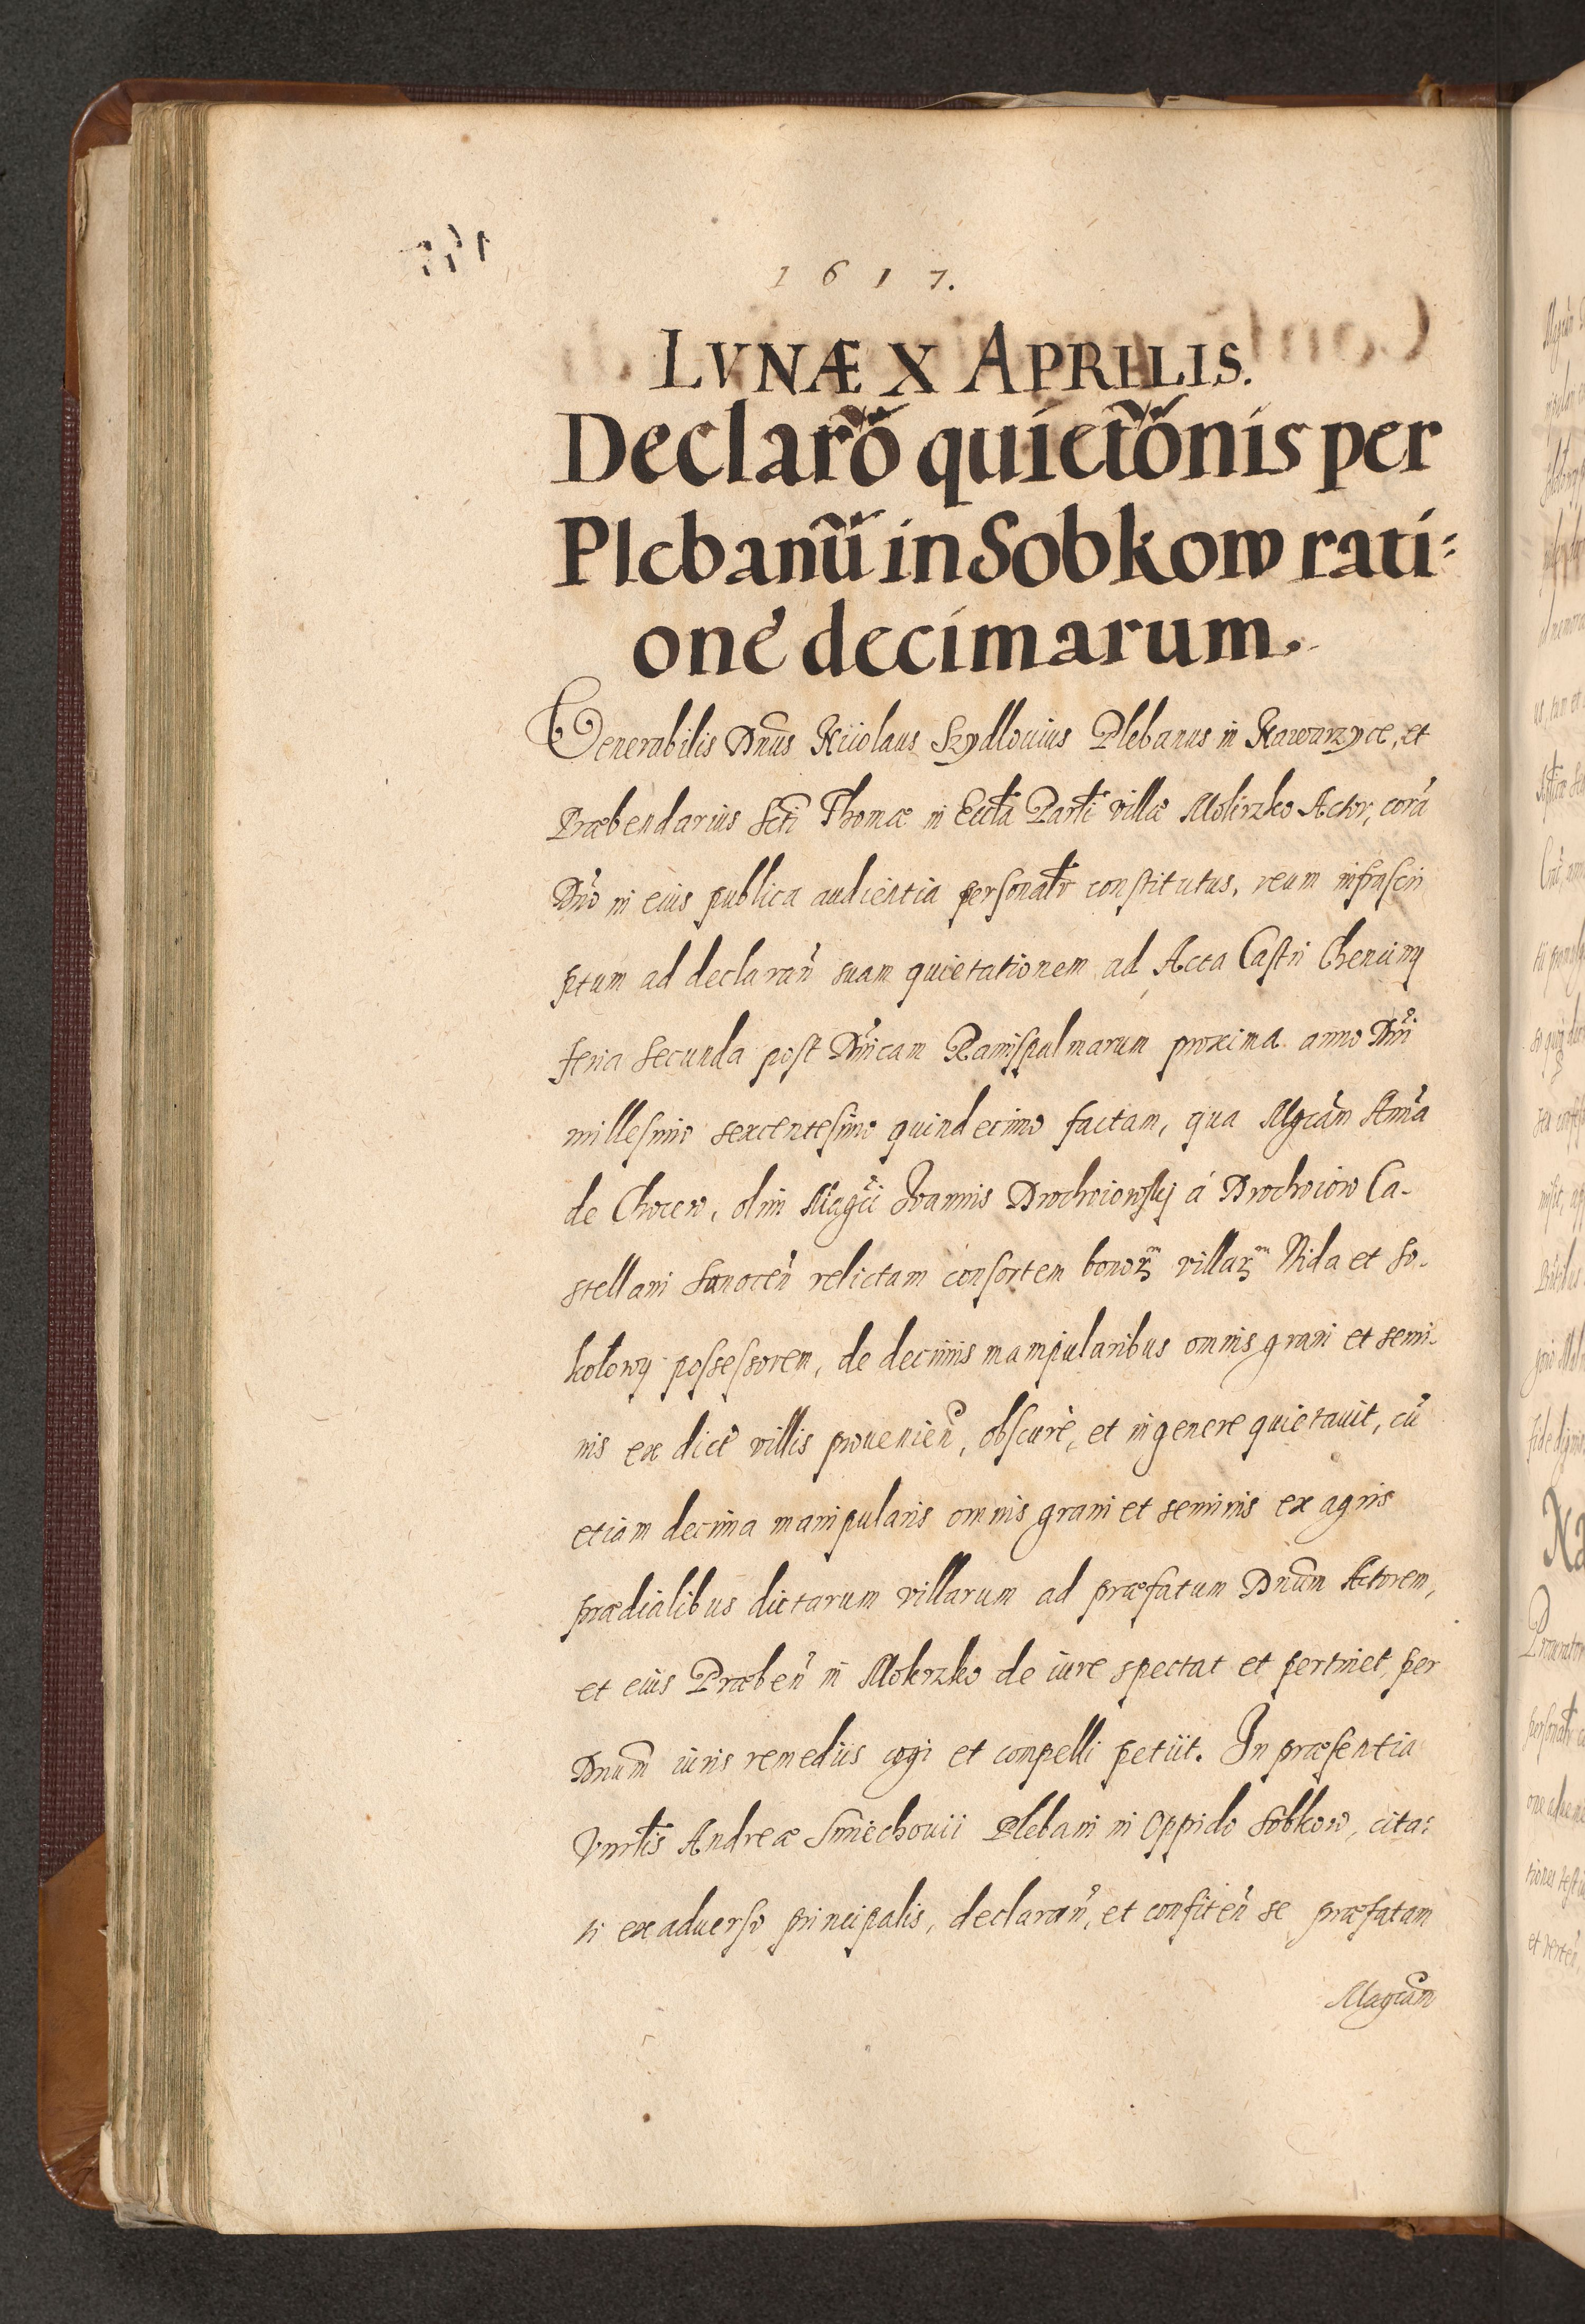 1617.
LVNÆ X APRILIS.
Declarõ quietõnis per
Plebanũ in Sobkow rati=
one decimarum.
Venerabilis Dnus Nicolaus Szydlouius Plebanus in Kawarzyce, et
Præbendarius Scti Thomæ in Eccła Parłi villæ Mokrzko Actor, corã
Dno in eius publica audientia personałr constitutus, reum infrascri
ptum ad declarañ suam quietationem ad Acta Castri Chenciny
feria secunda post Dnicam Ramispalmarum proxima anno Dni
millesimo sexcentesimo quindecimo factam, qua Mgcam Annã
de Chocen, olim Magci Joannis Drohoiowskj á Drohoiow Ca-
stellani Sanoceñ relictam consortem bonorm villarm Nida et So-
kołowy possessorem, de decimis manipularibus omnis grani et semi-
nis ex dict villis prouenień, obscurè, et in genere quietauit, cũ
etiam decima manipularis omnis grani et seminis ex agris
prædialibus dictarum villarum ad præfatum Dnum Actorem,
et eius Præbeñ in Mokrzko de iure spectat et pertinet, per
Dnum iuris remediis cogi et compelli petiit. In præsentia
Vnrłis Andreæ Smiechouii Plebani in Oppido Sobkow, cita=
ti ex aduerso principalis, declarañ, et confiteñ se præfatam
Magcam